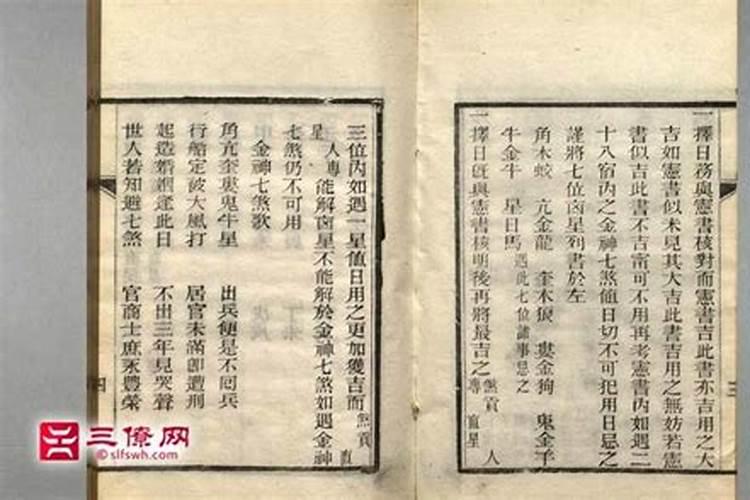 一擇日務與憲書核對而憲書吉此書亦吉用之大
吉如憲書似未見其大吉此書吉用之無妨若憲
書似吉此書不吉甯可不用再考憲書內如遇二
十八宿內之金神七煞值日切不可犯用日忌之
謹將七位凶星列書於左
角木蛟 亢金龍 奎木狼 婁金狗 鬼金羊
牛金牛 星日馬 遇此七位諸事忌之
一擇日既與憲書核明後再將最吉之 煞貢 專 直星 人
三
三位內如遇一星值日用之更加獲吉而 煞貢 直
星 人專 能解凶星不能解於金神七煞如遇金神
七煞仍不可用
金神七煞歌
角亢奎婁鬼牛星 出兵便是不回兵
行船定被大風打 居官未滿卽遭刑
起造婚姻逢此日 不出三年見哭聲
世人若知避七煞 官商士庶永豐榮
四
三僚网
©slfswh.com